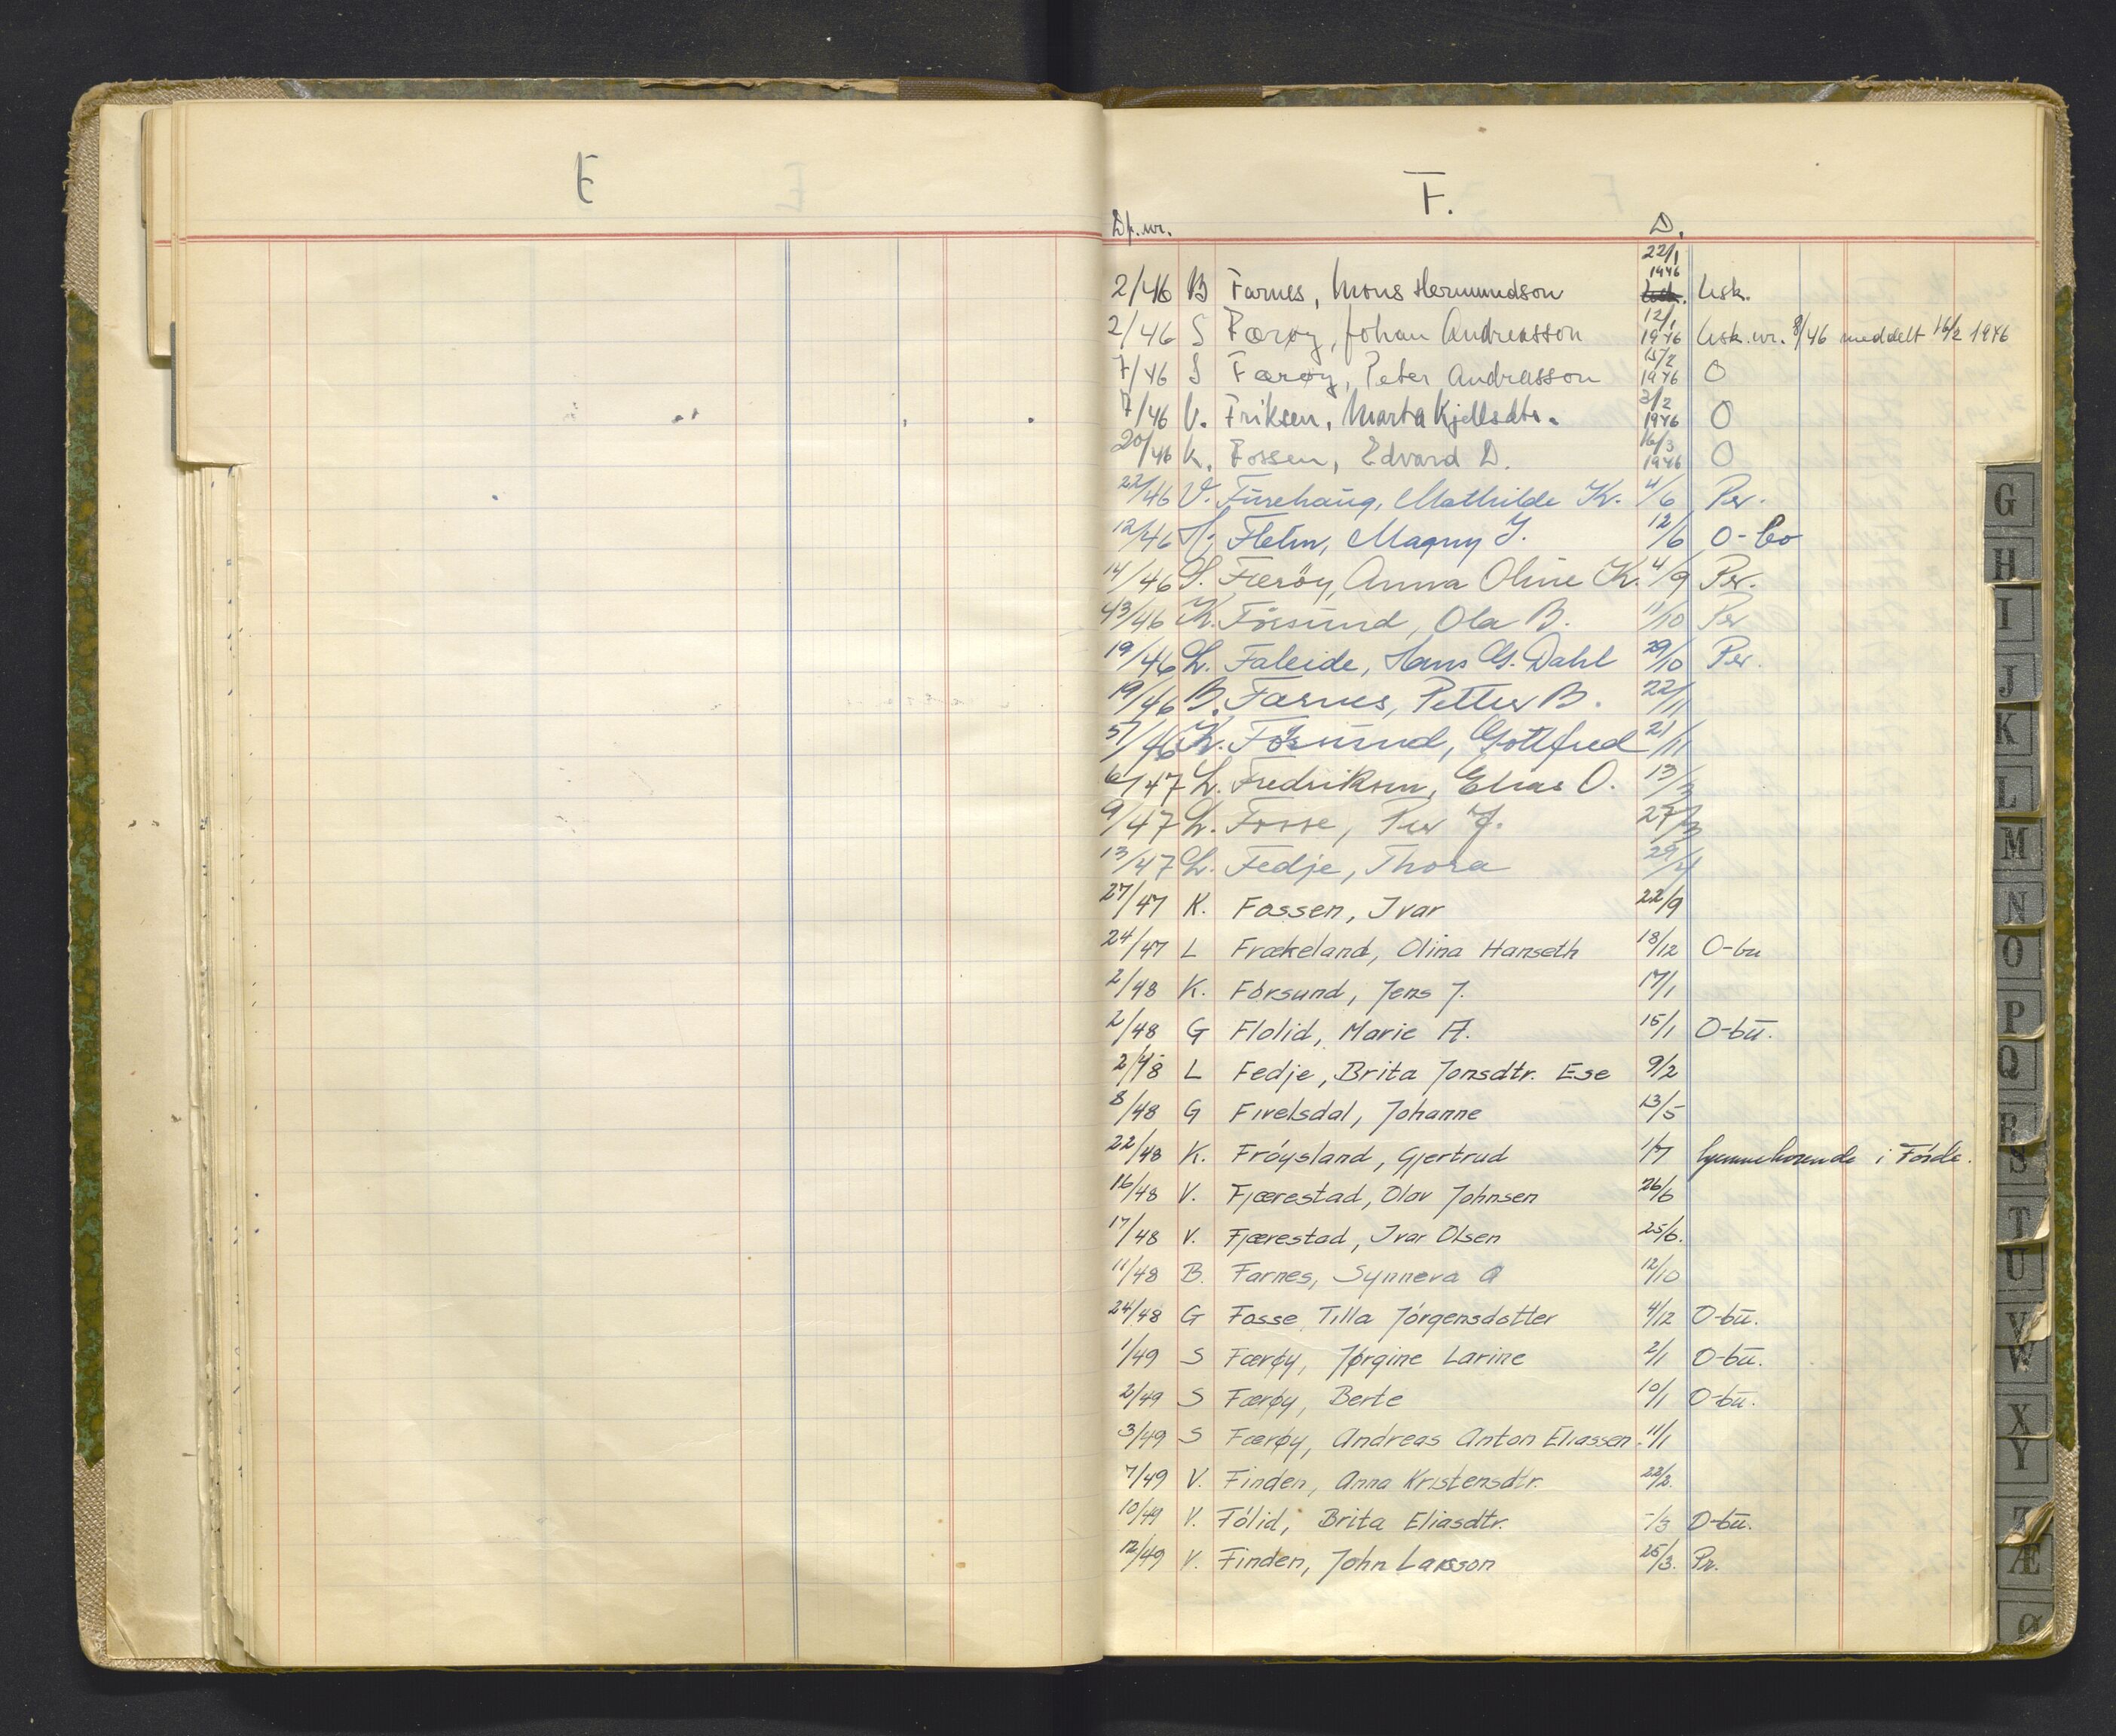 E
F.
Df. nr. D.
2/46 B Farnes, Mons Hermundson 22/1 1946 Usk.
2/46 S Færøy, Johan Andreasson 12/1 1946 Usk. nr. 8/46 meddelt 16/2 1946
7/46 S Færøy, Peter Andrasson 15/2 1946 O
7/46 V. Friksen, Marta Kjellsdtr. 3/2 1946 O
20/46 K. Fossen, Edvard D. 16/3 1946 O
22/46 V. Furehaug, Mathilde K. 4/6 Pr.
12/46 H. Fletn, Magny J. 12/6 O-bo
14/46 S. Færöy, Anna Oline K. 4/9 Pr.
43/46 K. Försund, Ola B. 11/10 Pr
19/46 L. Faleide, Hans G. Dahl 29/10 Pr.
19/46 B. Farnes, Petter B. 22/11
51/46 K. Försund, Gottfred 21/11
6/47 L. Fredriksen, Elias O. 13/3
9/47 L. Fosse, Per J. 27/3
13/47 L. Fedje, Thora 29/4
27/47 K. Fossen, Ivar 22/9
24/47 L Frækeland, Olina Hanseth 18/12 O-bu
2/48 K. Fórsund, Jens J. 17/1
2/48 G Flolid, Marie A. 15/1 O-bū.
2/48 L Fedje, Brita Jonsdtr. Ese 9/2
8/48 G Fivelsdal, Johanne 13/5
22/48 K. Fróysland, Gjertrud 1/7 hjemmehørende i Fórde.
16/48 V. Fjærestad, Olav Johnsen 26/6
17/48 V. Fjærestad, Ivar Olsen 25/6.
11/48 B. Farnes, Synneva A 12/10
24/48 G Fosse Tilla Jórgensdotter 4/12 O-bū.
1/49 S Færøy, Jørgine Larine 2/1 O-bū.
2/49 S Færøy, Berte 10/1 O-bū.
3/49 S Færøy, Andreas Anton Eliassen. 11/1
7/49 V. Finden, Anna Kristensdtr. 22/2.
10/49 V. Fólid, Brita Eliasdtr. -/3 O-bū.
12/49 V. Finden, John Larsson 25/3. Pr.
G
H
I
J
K
L
M
N
O
P
Q
R
S
T
U
V
W
X
Y
Z
Æ
Ø